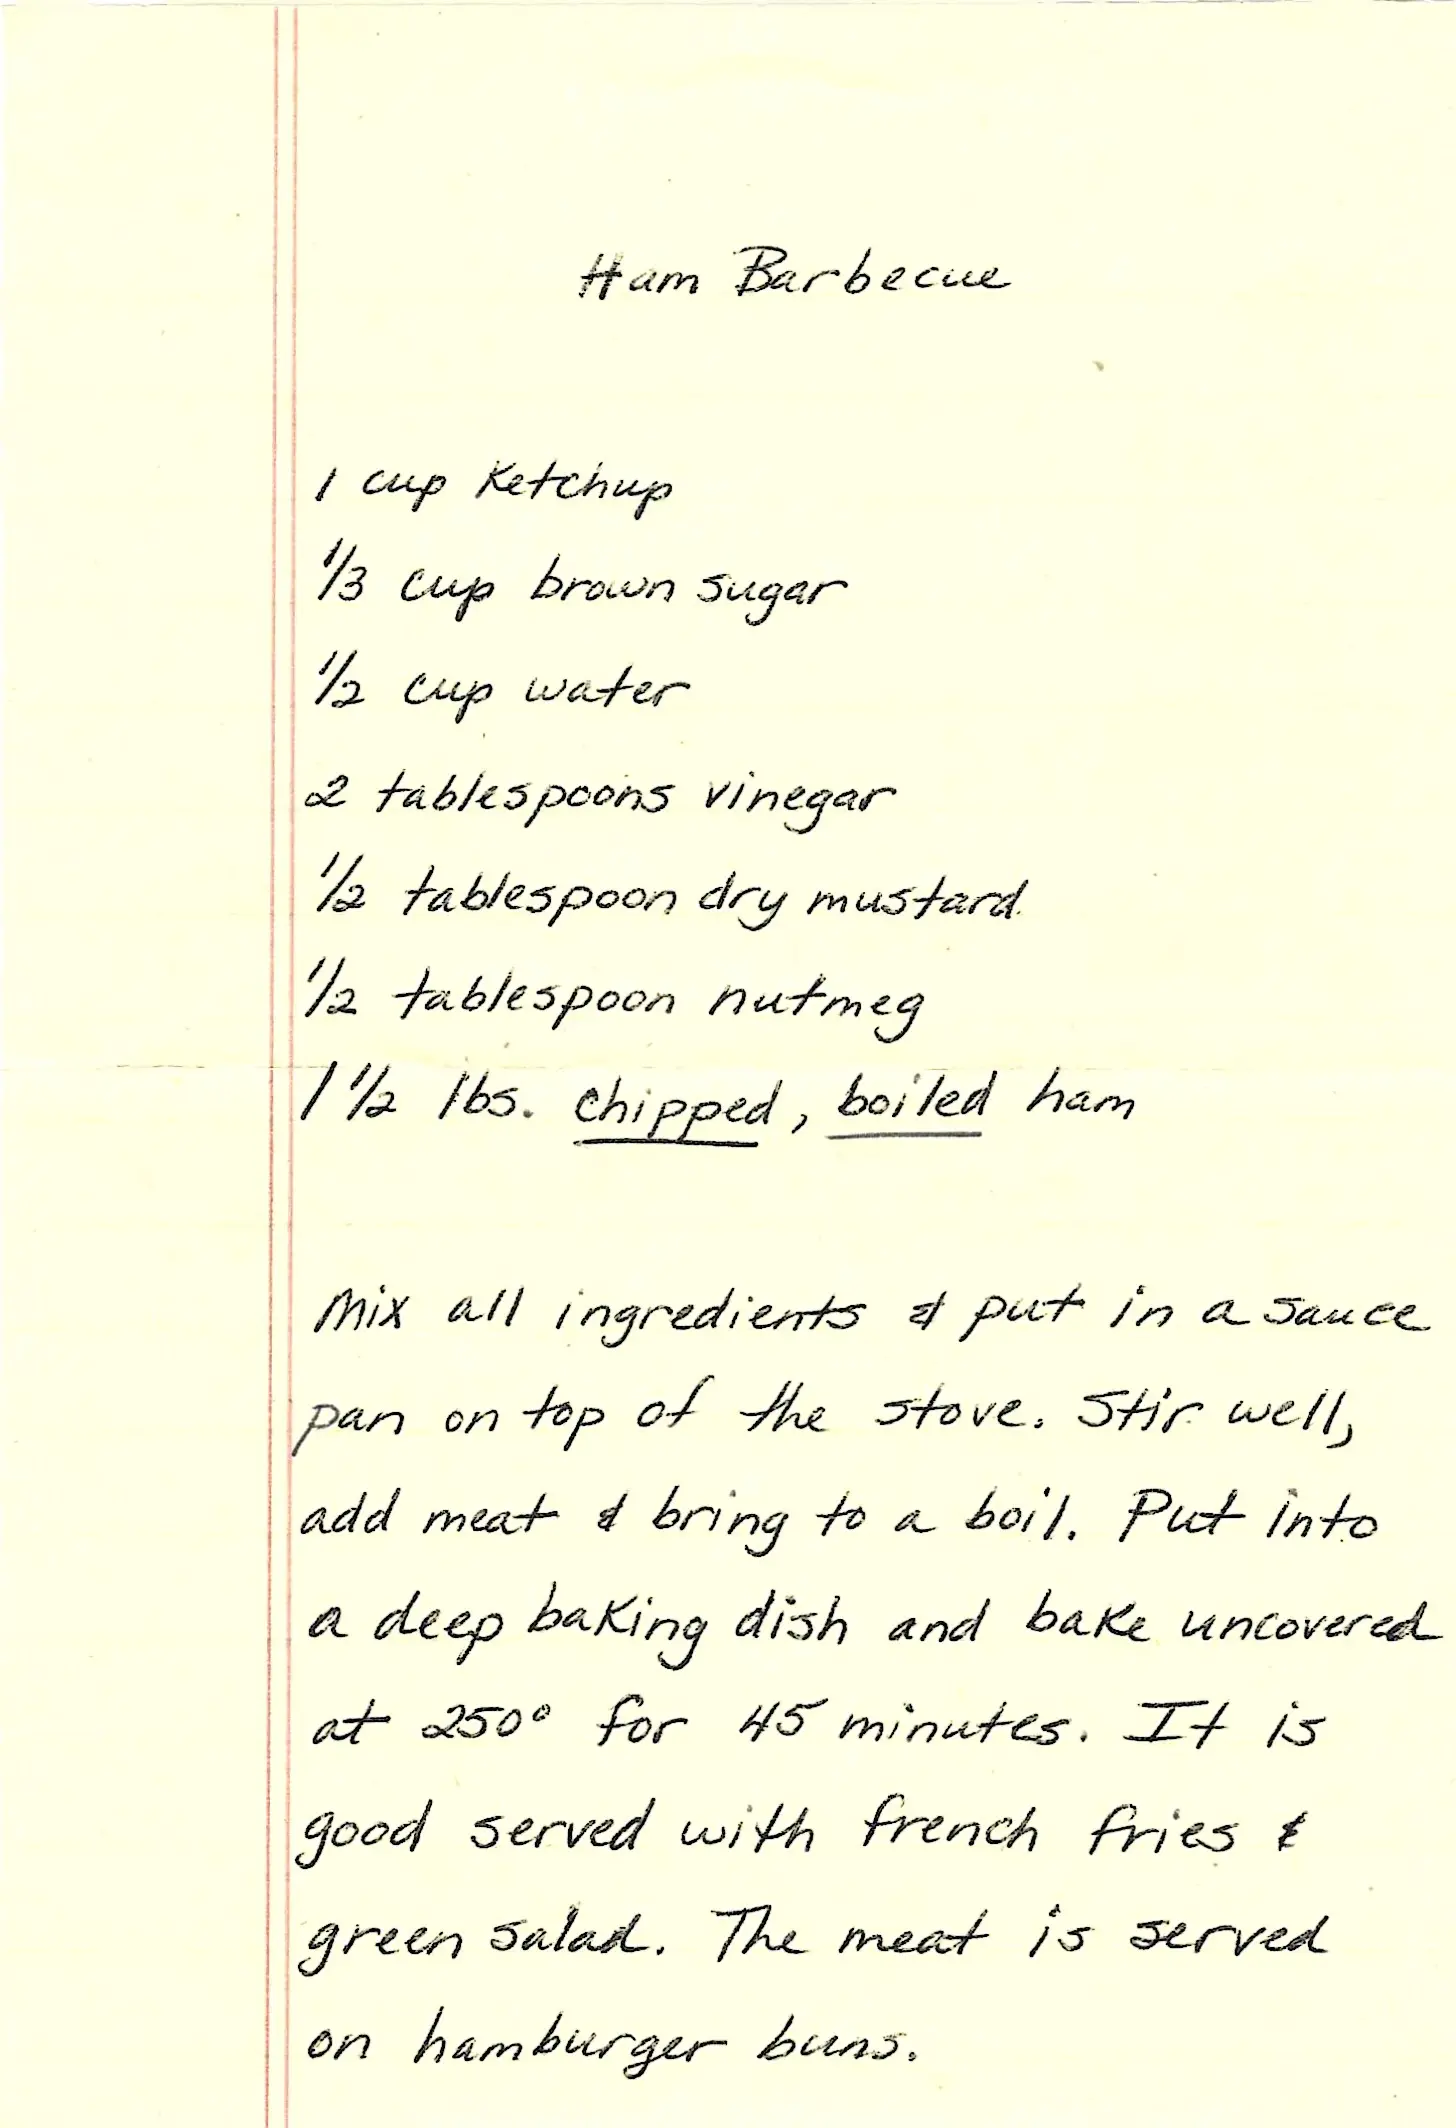 Ham Barbecue
1 cup Ketchup
1/3 cup brown sugar
1/2 cup water
2 tablespoons vinegar
1/2 tablespoon dry mustard
1/2 tablespoon nutmeg
1 1/2 lbs. chipped, boiled ham
Mix all ingredients & put in a sauce
pan on top of the stove. Stir well,
add meat & bring to a boil. Put into
a deep baking dish and bake uncovered
at 250° for 45 minutes. It is
good served with french fries &
green salad. The meat is served
on hamburger buns.